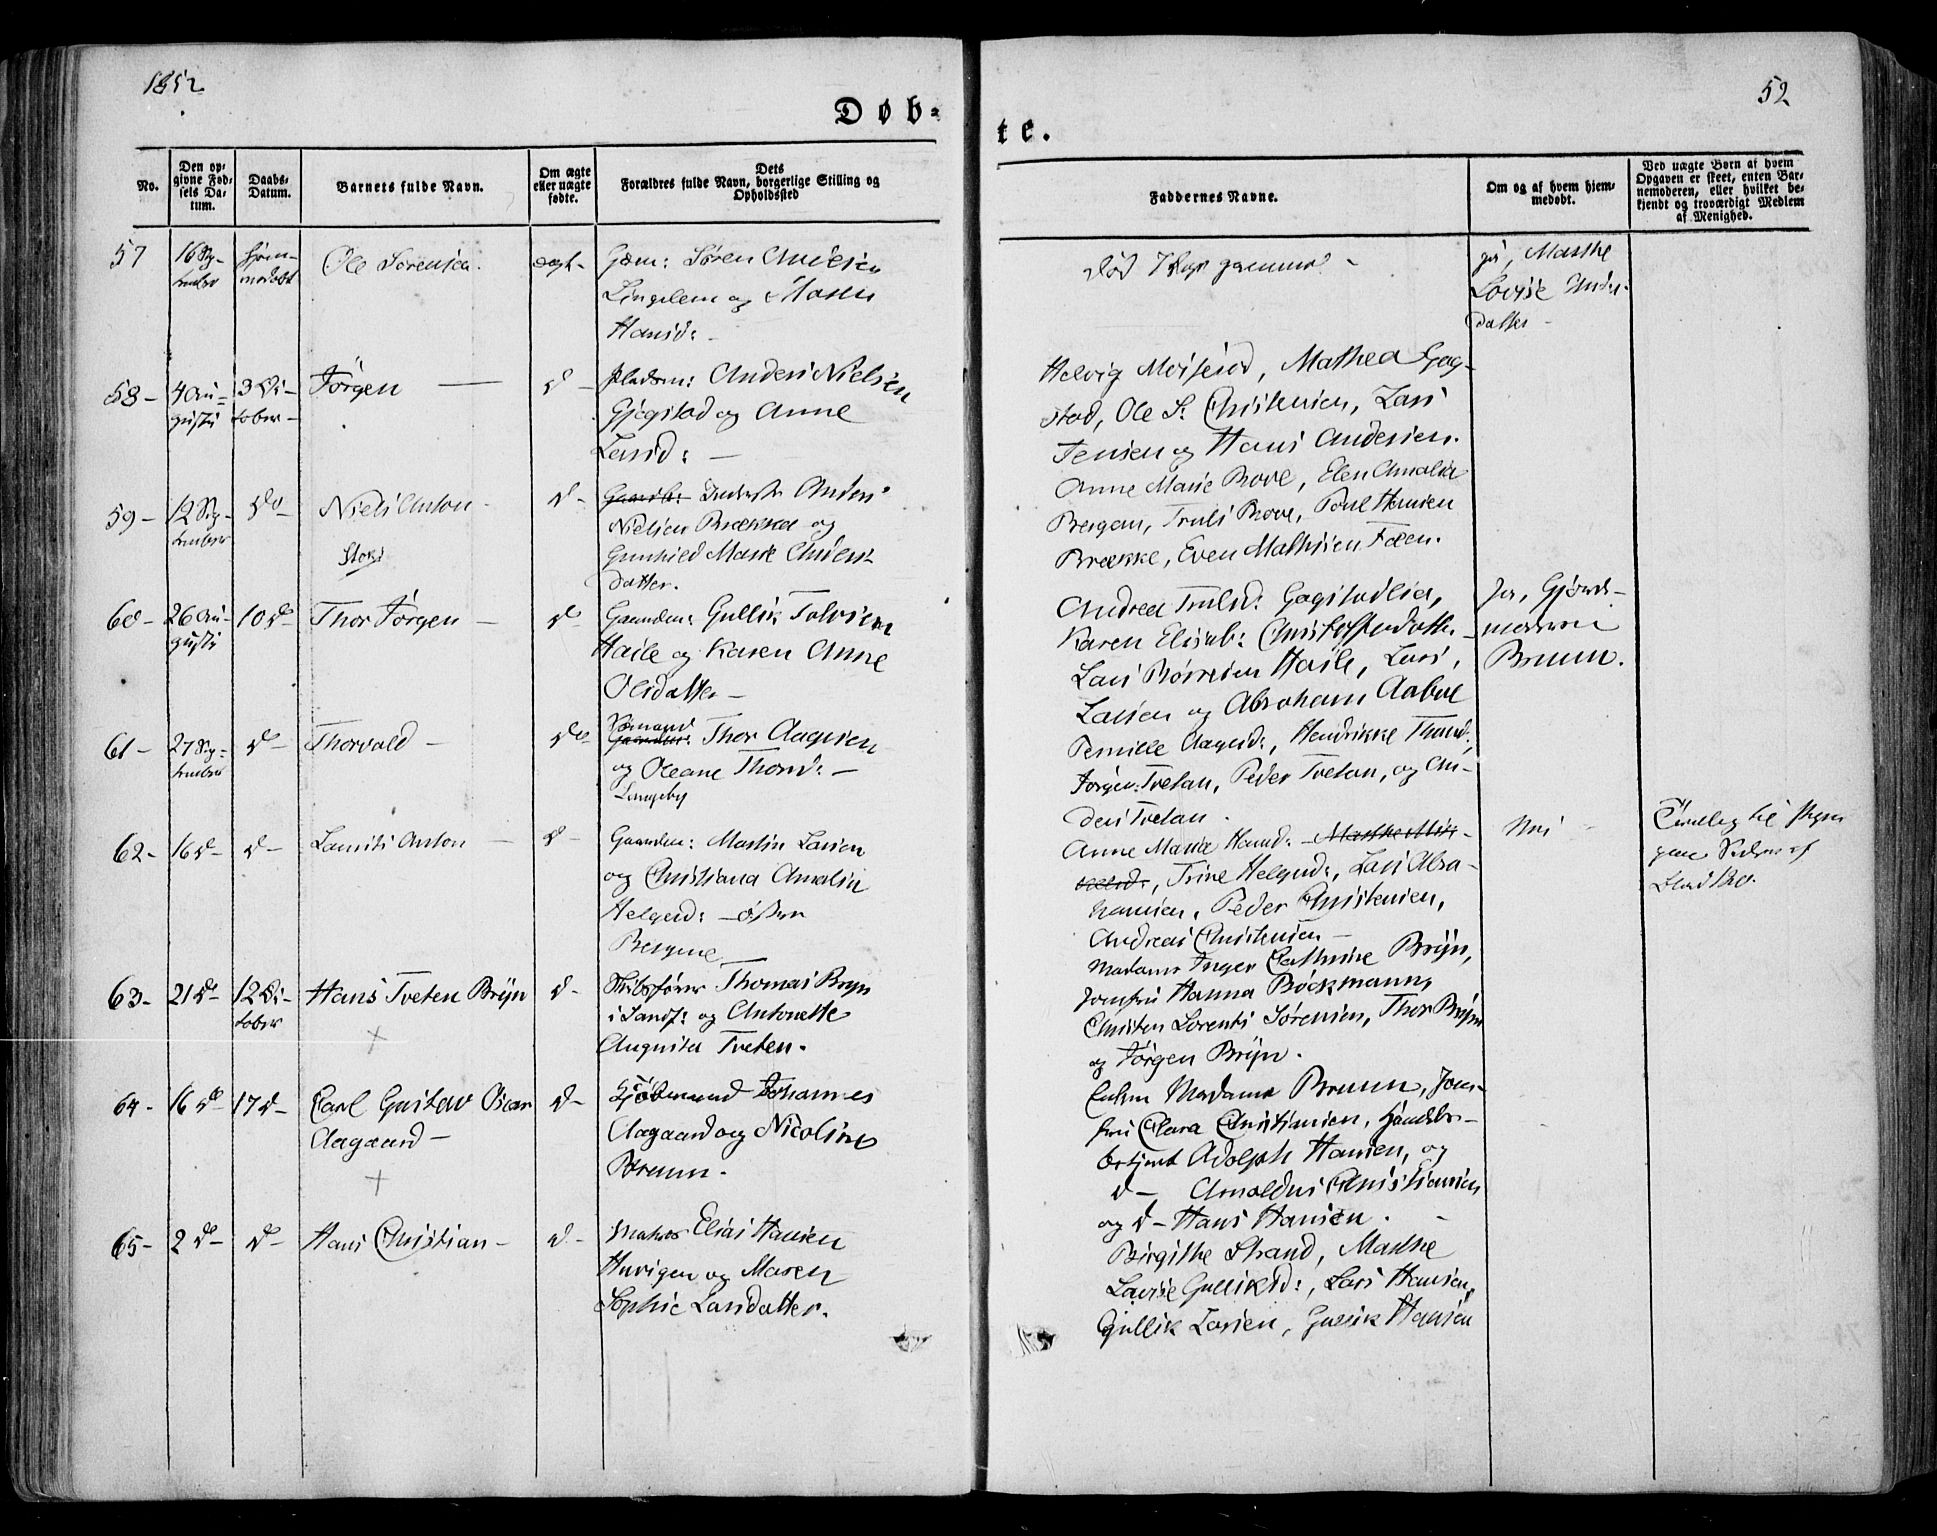 1852
52
Døb-
te.
No.
Den op-
givne Fød-
sels Da-
tum.
Daabs-
Datum.
Barnets fulde Navn.
Om ægte
eller uægte
fødte.
Dets
Forældres fulde Navn, borgerlige Stilling og
Opholdssted
Faddernes Navne.
Om og af hvem hjem-
medøbt.
Ved uægte Børn af hvem
Opgaven er skeet, enten Bar-
nemoderen, eller hvilket be-
kjendt og troværdigt Medlem
af Menighed.
57
16 Sep-
tember
Hjem-
medøbt
Ole Sørensen.
ægt-
Søren Andersen
og Maren
Hansd:
død
gammel -
ja, Marthe
Lovise Anders-
datter -
58-
4 Au-
gusti
3 Oc-
tober-
Jørgen
d-
Pladsm: Anders Nielsen
Gjegstad og Anne
Larsd:
Helvig Moiseid, Mathea Gog-
stad, Ole S. Christensen, Lars
Jensen og Hans Andersen.
59-
12 Sep-
tember
do-
Niels Anton-
d-
Inderst Anders
Nielsen Brække og
Gunhild Marie Anders-
datter.
Anne Marie Bove, Elen Amalia
Bergan, Truls Bove, Poul Hansen
Brække, Even Mathisen Foen.
60-
26 Au-
gusti
10 do
Thor Jørgen -
do
Gaardm: Gullik Tolvsen
Haile og Karen Anne
Olsdatter-
Andrea Trulsd: Gogstadlia,
Karen Elisab: Christoffersdatter
Lars Børresen Haile, Lars
Larsen og Abraham Aabol
Ja, Gjorde-
moderen
Bruun.
61-
27 Sep-
tember
d-
Thorvald -
do
Sømand
Thor Aagesen
og Oleane Thorsd: -
Langeby
Pernille Aagesd:, Hendrikke Thorsd:,
Jørgen Tvetan, Peder Tvetan, og An-
ders Tvetan.
62-
16 d-
d-
Laurits Anton -
d-
Gaardm: Martin Larsen
og Christiana Amalia
Helgesd: - østre
Bergene
Anne Maria Hansd: - Marthe Mik-
kelsd:, Trine Helgesd:, Lars Abra-
hamsen, Peder Christensen,
Andreas Christensen -
Nei
63-
21 d-
12 Oc-
tober
Hans Tveten Brÿn
+
d-
Skibsfører Thomas Bryn
i Sandf: og Antonette
Augusta Tveten.
Madame Inger Cathrine Brÿn,
Jomfru Hanna Böckmann,
Christen Lorents Sørensen, Thor Brÿn
og Jørgen Brÿn.
64-
16 do
17 d-
Carl Gustav Oscar
Aagaard -
+
d-
Kjøbmand Johannes
Aagaard og Nicoline
Bruun.
Enken Madame Bruun, Jom-
fru Clara Christiansen, Handels-
betjent Adolph Hansen, og
d- Arnoldus Christiansen
og d- Hans Hansen.
65-
2 d-
d-
Hans Christian -
d-
Matros Elias Hansen
og Maren
Sophie Larsdatter.
Birgithe Strand, Marthe
Lovise Gulliksd:, Lars Hansen,
Gullik Larsen, Gullik Hansen